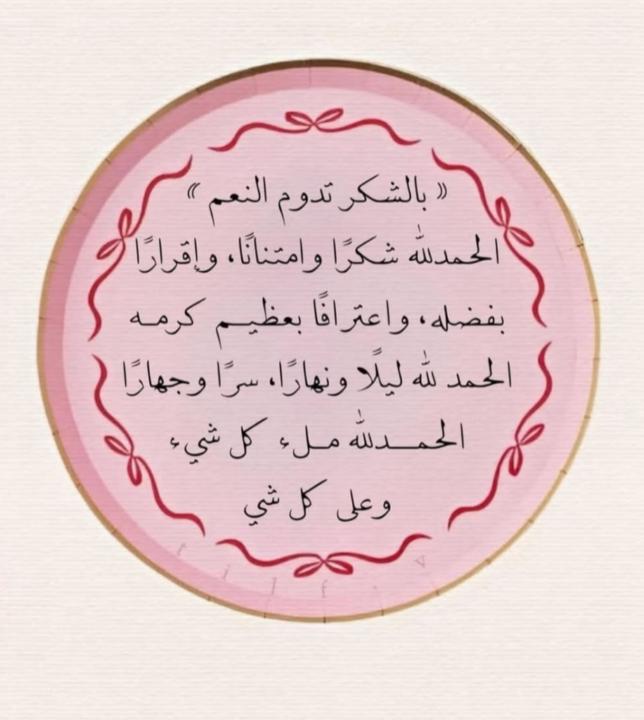 « بالشكر تدوم النعم »
الحمدلله شكرًا وامتنانًا، وإقرارًا
بفضله، واعترافًا بعظيم كرمه
الحمد لله ليلًا ونهارًا، سرًا وجهارًا
الحمدلله ملء كل شيء
وعلى كل شي